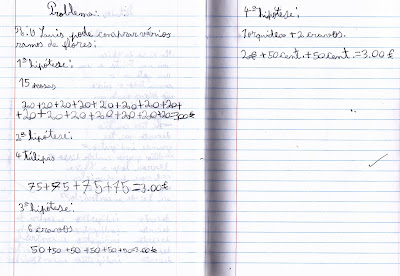 Problema:
R: O Luís pode comprar vários
ramos de flores:
1ª hipótese:
15 rosas
20+20+20+20+20+20+20+20+
+20+20+20+20+20+20+20=3.00€
2ª hipótese:
4 túlipas
75+75+75+75=3.00€
3ª hipótese:
6 cravos
50+50+50+50+50+50=3.00€
4ª hipótese:
1 orquídea + 2 cravos.
2€ + 50 cent. + 50 cent. = 3.00 €